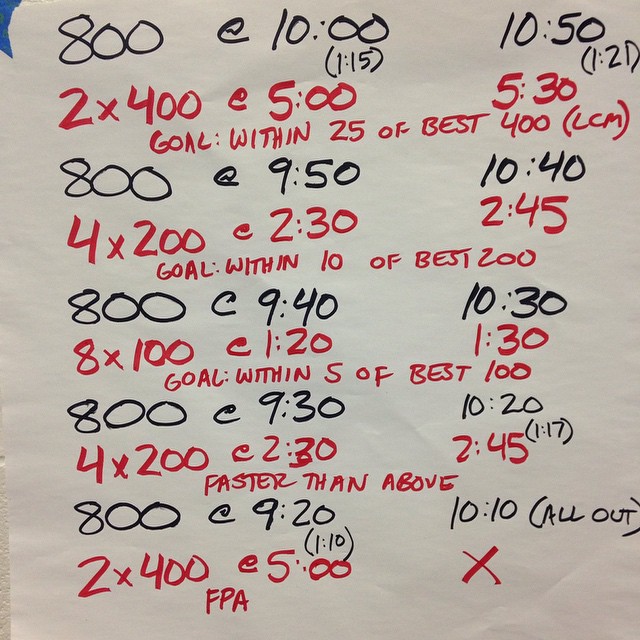 800 @ 10:00 10:50
(1:15) (1:21)
2x400 @ 5:00 5:30
GOAL: WITHIN 25 OF BEST 400 (LCM)
800 @ 9:50 10:40
4x200 @ 2:30 2:45
GOAL: WITHIN 10 OF BEST 200
800 @ 9:40 10:30
8x100 @ 1:20 1:30
GOAL: WITHIN 5 OF BEST 100
800 @ 9:30 10:20
4x200 @ 2:30 2:45 (1:17)
FASTER THAN ABOVE
800 @ 9:20 10:10 (ALL OUT)
(1:10)
2x400 @ 5:00 X
FPA